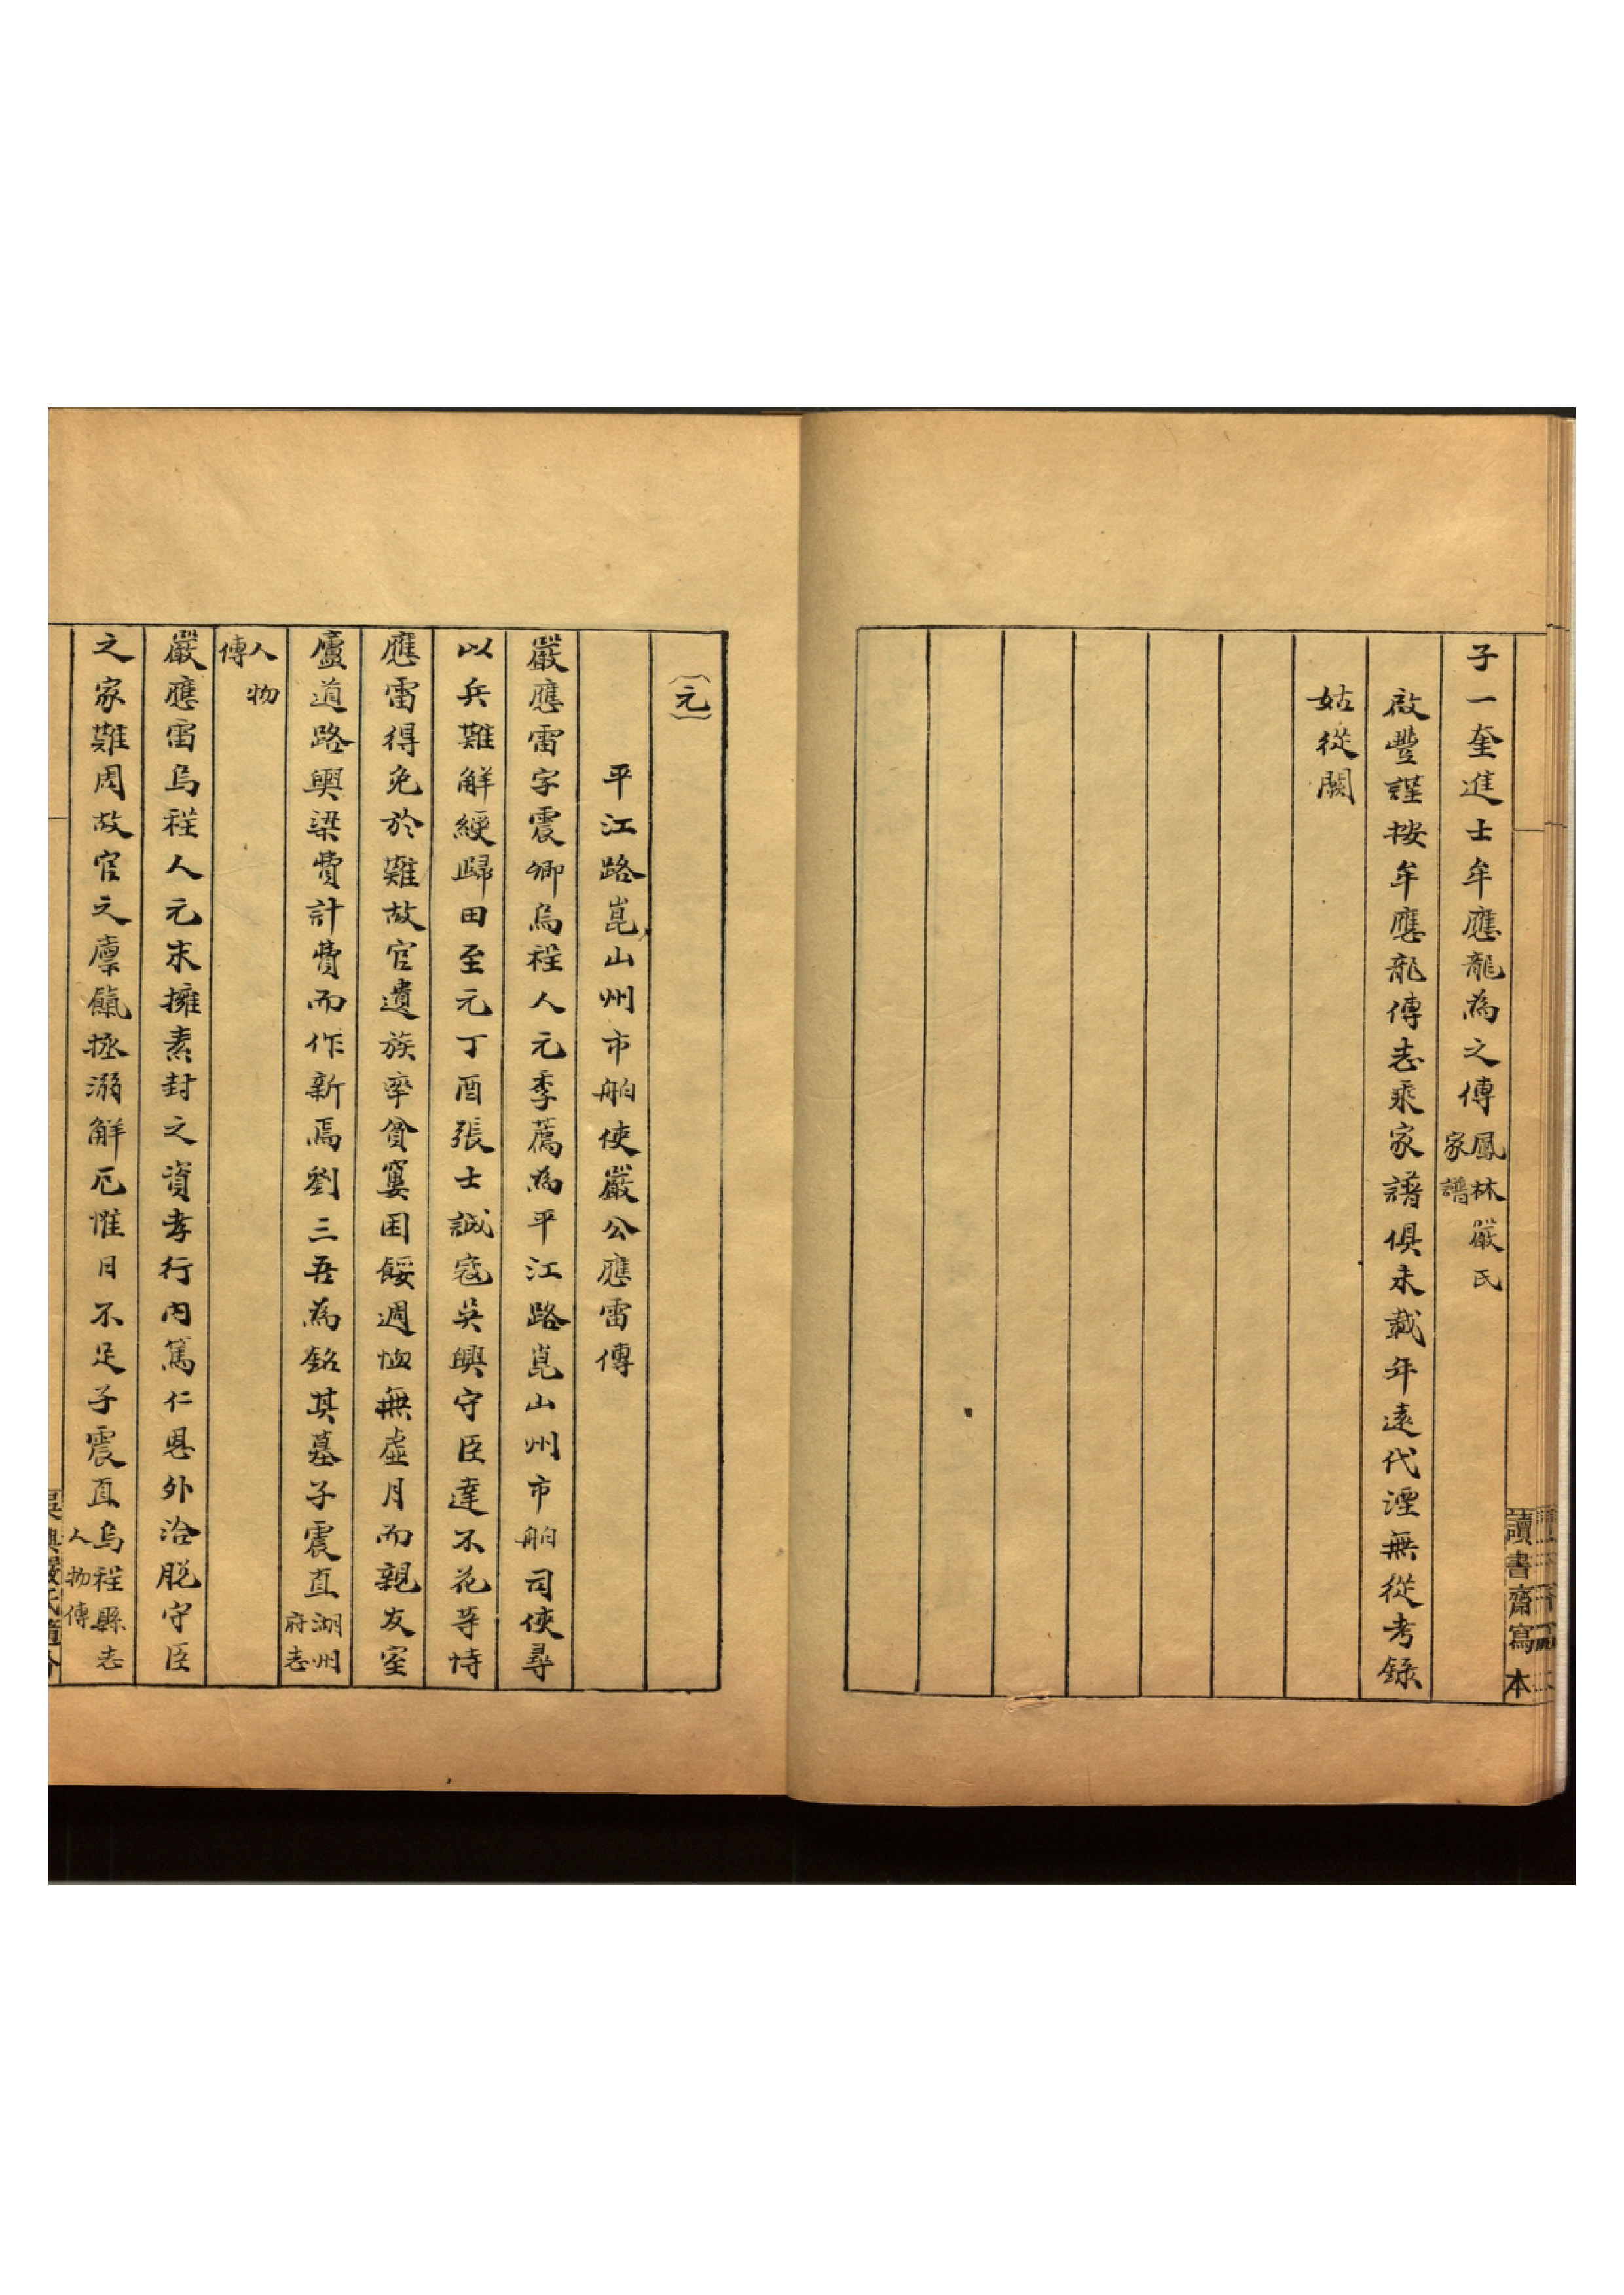 子一奎進士牟應龍為之傳鳳林嚴氏家譜
啟豐謹按牟應龍傳志乘家譜俱未載年遠代湮無從考錄
姑從闕
讀書齋寫本
元
平江路崑山州市舶使嚴公應雷傳
嚴應雷字震卿烏程人元季薦為平江路崑山州市舶司使尋
以兵難解綬歸田至元丁酉張士誠寇吳興守臣達不花等恃
應雷得免於難故官遺族率貧窶困餒週恤無虛月而親友室
廬道路輿梁費計費而作新焉劉三吾為銘其墓子震直湖州府志
人物傳
嚴應雷烏程人元末擁素封之資孝行內篤仁恩外洽脫守臣
之家難周故官之廪餼拯溺解厄惟日不足子震直烏程縣志人物傳